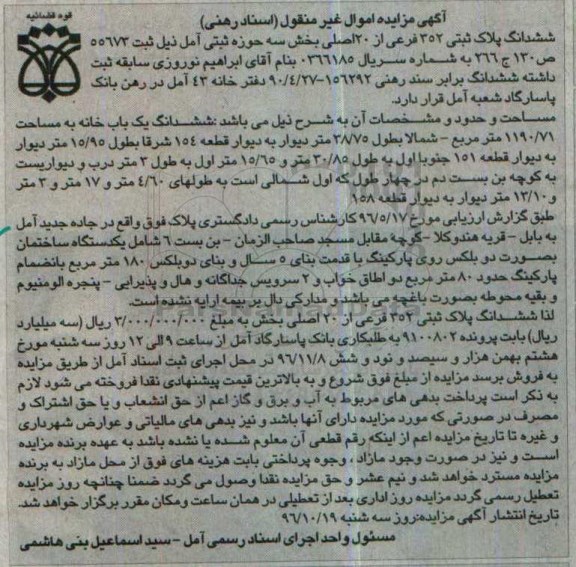 آگهی مزایده اموال غیر منقول (اسناد رهنی)
قوه قضائیه
ششدانگ پلاک ثبتی ۳۵۲ فرعی از ۲۰اصلی بخش سه حوزه ثبتی آمل ذیل ثبت ۵۵۶۷۳
ص ۱۳۰ ج ۲۶۶ به شماره سریال ۰۳۶۶۱۸۵ بنام آقای ابراهیم نوروزی سابقه ثبت
داشته ششدانگ برابر سند رهنی ۱۵۶۲۹۲-۹۰/۴/۲۷ دفتر خانه ۴۳ آمل در رهن بانک
پاسارگاد شعبه آمل قرار دارد.
مساحت و حدود و مشخصات آن به شرح ذیل می باشد :ششدانگ یک باب خانه به مساحت
۱۱۹۰/۷۱ متر مربع – شمالا بطول ۳۸/۷۵ متر دیوار به دیوار قطعه ۱۵۴ شرقا بطول ۱۵/۹۵ متر دیوار
به دیوار قطعه ۱۵۱ جنوبا اول به طول ۳۰/۸۵ متر و ۱۵/۶۵ متر اول به طول ۳ متر درب و دیواریست
به کوچه بن بست دم در چهار طول که اول شمالی است به طولهای ۴/۶۰ متر و ۱۷ متر و ۳ متر
و۱۳/۱۰ متر دیوار به دیوار قطعه ۱۵۸
طبق گزارش ارزیابی مورخ ۹۶/۵/۱۷ کارشناس رسمی دادگستری پلاک فوق واقع در جاده جدید آمل
به بابل – قریه هندوکلا –کوچه مقابل مسجد صاحب الزمان – بن بست ۶ شامل یکدستگاه ساختمان
بصورت دو بلکس روی پارکینگ با قدمت بنای ۵ سال و بنای دوبلکس ۱۸۰ متر مربع بانضمام
پارکینگ حدود ۸۰ متر مربع دو اطاق خواب و ۲ سرویس جداگانه و هال و پذیرایی – پنجره الومنیوم
و بقیه محوطه بصورت باغچه می باشد و مدارکی دال بر بیمه ارایه نشده است.
لذا ششدانگ پلاک ثبتی ۳۵۲ فرعی از ۲۰ اصلی بخش به مبلغ ۳/۰۰۰/۰۰۰/۰۰۰ ریال (سه میلیارد
ریال) بابت پرونده ۹۱۰۰۸۰۲ به طلبکاری بانک پاسارگاد آمل از ساعت ۹الی ۱۲ روز سه شنبه مورخ
هشتم بهمن هزار و سیصد و نود و شش ۹۶/۱۱/۸ در محل اجرای ثبت اسناد آمل از طریق مزایده
به فروش برسد مزایده از مبلغ فوق شروع و به بالاترین قیمت پیشنهادی نقدا فروخته می شود لازم
به ذکر است پرداخت بدهی های مربوط به آب و برق و گاز اعم از حق انشعاب و یا حق اشتراک و
مصرف در صورتی که مورد مزایده دارای آنها باشد و نیز بدهی های مالیاتی و عوارض شهرداری
و غیره تا تاریخ مزایده اعم از اینکه رقم قطعی آن معلوم شده یا نشده باشد به عهده برنده مزایده
است و نیز در صورت وجود مازاد ، وجوه پرداختی بابت هزینه های فوق از محل مازاد به برنده
مزایده مسترد خواهد شد و نیم عشر و حق مزایده نقدا وصول می گردد ضمنا چنانچه روز مزایده
تعطیل رسمی گردد مزایده روز اداری بعد از تعطیلی در همان ساعت ومکان مقرر برگزار خواهد شد.
تاریخ انتشار آگهی مزایده:روز سه شنبه ۹۶/۱۰/۱۹
مسئول واحد اجرای اسناد رسمی آمل – سید اسماعیل بنی هاشمی